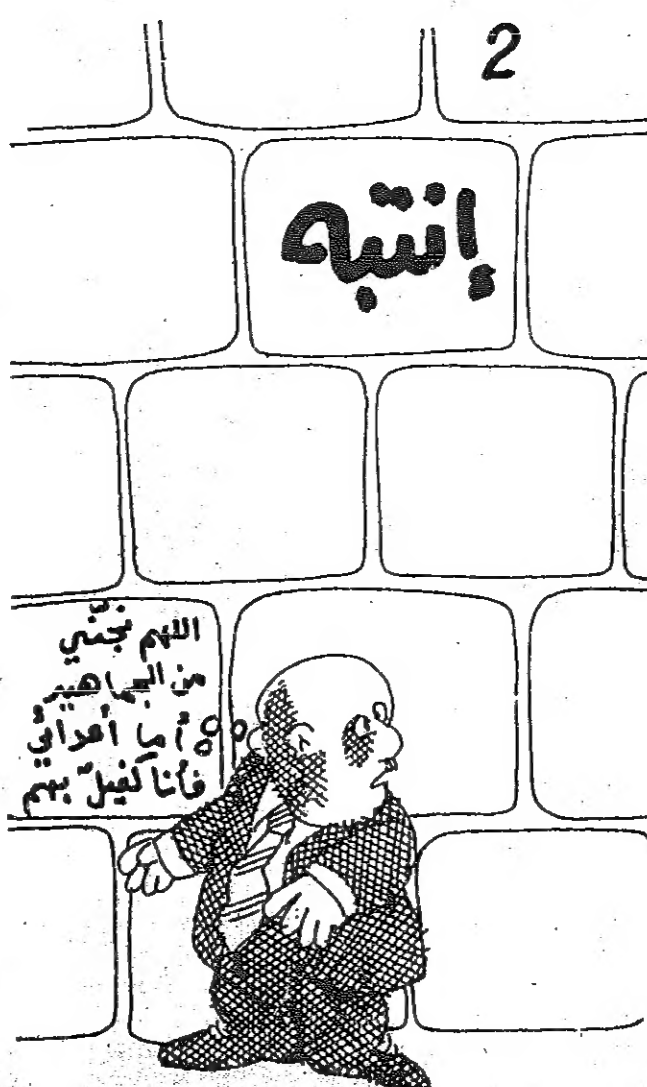 2
إنتبه
اللهم نجّني
من الجماهير
أما أعدائي
فأنا كفيلٌ بهم